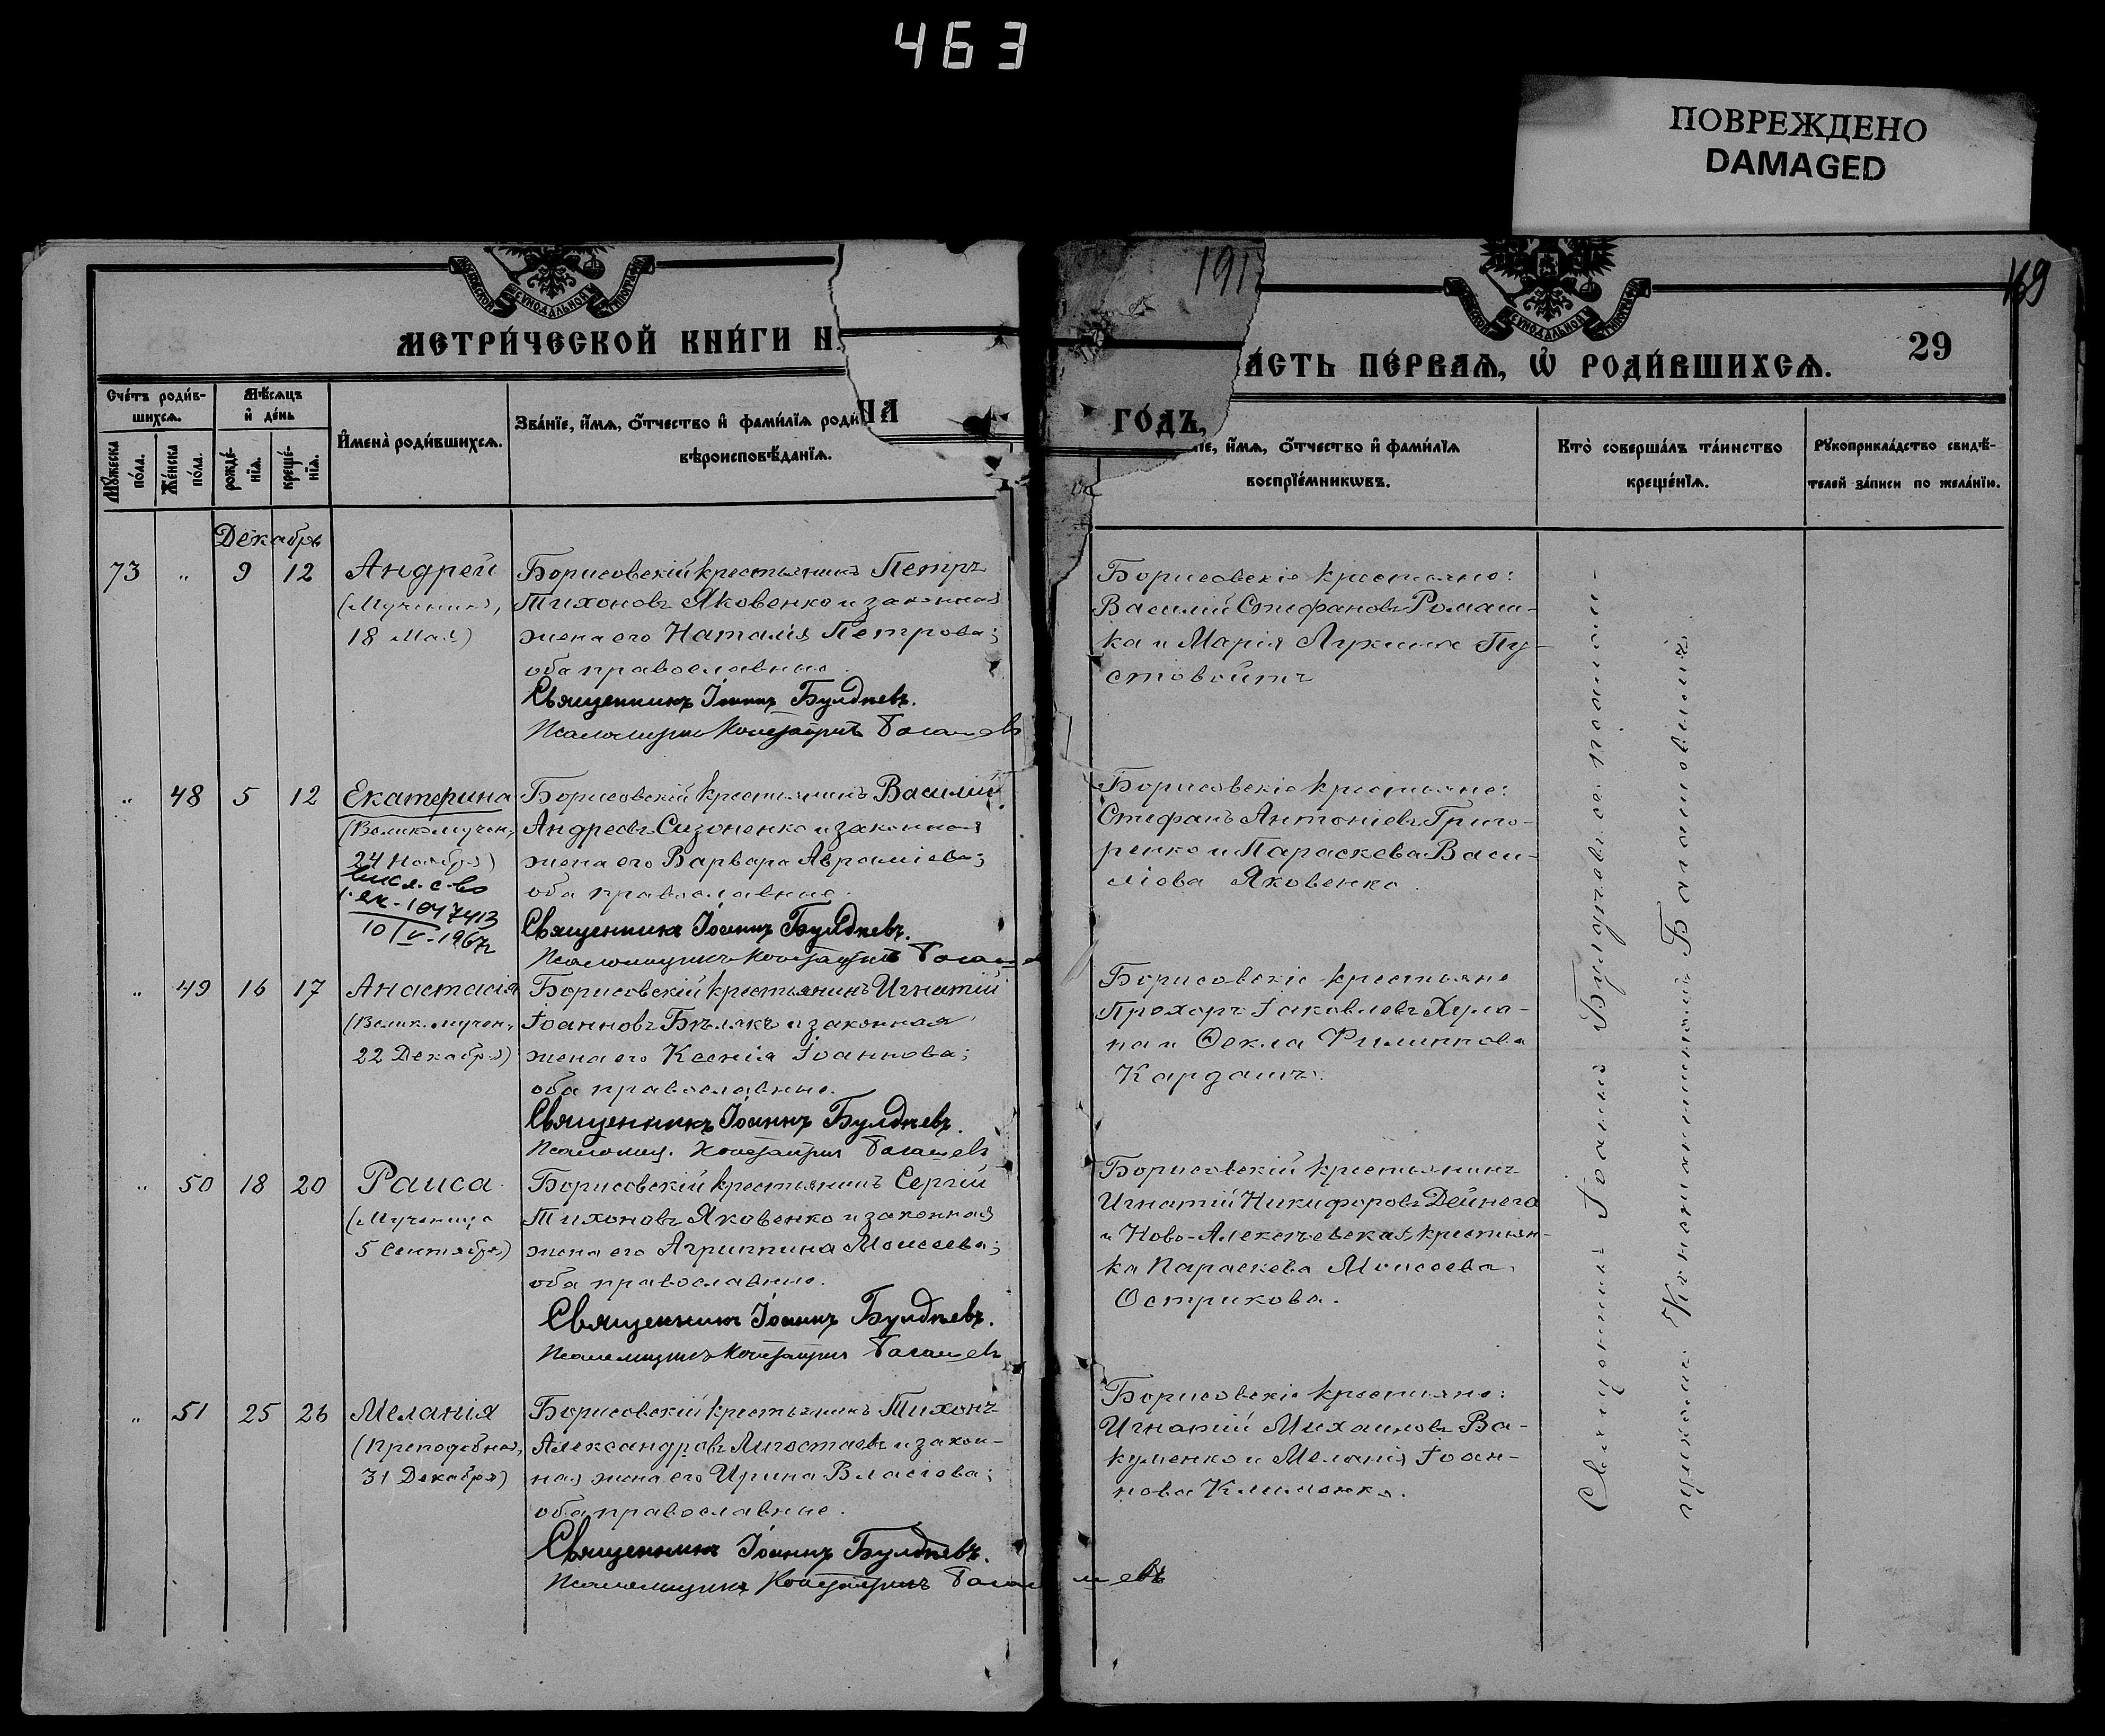 463
ПОВРЕЖДЕНО
DAMAGED
МЕТРИ́ЧЕСКОЙ КНИ́ГИ Н
НА
191
ГО́ДЪ,
А́СТЬ ПЕ́РВАѦ, Ѡ҆ РОДИ́ВШИХСѦ.
29
169
Сче́тъ роди́в-
шихсѧ.
Мѣ́сѧцъ
и҆ де́нь
Мꙋ́жеска
по́ла.
Же́нска
по́ла.
рожде́-
нїѧ.
креще́-
нїѧ.
И҆мена̀ роди́вшихсѧ.
Зва́нїе, и҆́мѧ, ѻ҆́тчество и҆ фами́лїѧ роди
вѣроисповѣ́данїѧ.
їе, и҆́мѧ, ѻ҆́тчество и҆ фами́лїѧ
воспрїе́мникѡвъ.
Кто̀ соверша́лъ та́инство
креще́нїѧ.
Рꙋкоприкла́дство свидѣ́-
телей за́писи по жела́нїю.
Декабрь
73 " 9 12 Андрей
(Мученика,
18 Мая)
Борисовскій крестьянинъ Петръ
Тихоновъ Яковенко и законная
жена его Наталія Петрова;
оба православные.
Священникъ Іоаннъ Булдневъ.
Псаломщикъ Константинъ Багашевъ
Борисовскіе крестьяне:
Василий Стефановъ Ромаш-
ка и Марія Лукина Пу-
стовойтъ
" 48 5 12 Екатерина
(Великомучен,
24 Ноября)
10/V-1967г
Борисовскій крестьянинъ Василий
Андреевъ Сизоненко и законная
жена его Варвара Аврамієва;
оба православные.
Священникъ Іоаннъ Булдневъ.
Псаломщикъ Константинъ Багаше
Борисовскіе крестьяне:
Стефанъ Антоніевъ Григо-
ренко и Параскева Васи-
ліева Яковенко.
" 49 16 17 Анастасія
(Велик. мучен,
22 Декабря)
Борисовскій крестьянинъ Игнатій
Іоанновъ Бѣлякъ и законная
жена его Ксенія Іоаннова;
оба православные.
Священникъ Іоаннъ Булдневъ.
Псаломщ. Константинъ Багашевъ
Борисовскіе крестьяне
Прохоръ Іаковлевъ Хула-
на и Ѳекла Филиппова
Кардашъ.
" 50 18 20 Раиса
(Мученица
5 Сентября)
Борисовскій крестьянинъ Сергій
Тихоновъ Яковенко и законная
жена его Агриппина Моисеева;
оба православные.
Священникъ Іоаннъ Булдневъ.
Псаломщикъ Константинъ Багашевъ
Борисовскій крестьянинъ
Игнатій Никифоровъ Дейнега
и Ново-Алексѣевская крестьян-
ка Параскева Моисеева
Острикова.
" 51 25 26 Меланія
(Преподобная,
31 Декабря)
Борисовскій крестьянинъ Тихонъ
Александровъ Лигостаевъ и закон-
ная жена его Ирина Власіева;
оба православные.
Священникъ Іоаннъ Булдневъ.
Псаломщикъ Константинъ Багашевъ
Борисовскіе крестьяне:
Игнатій Михаиловъ Ва-
куленко и Меланія Іоан-
нова Клименко.
Священникъ Іоаннъ Булдневъ съ псалом-
щикомъ Константиномъ Багашовымъ.